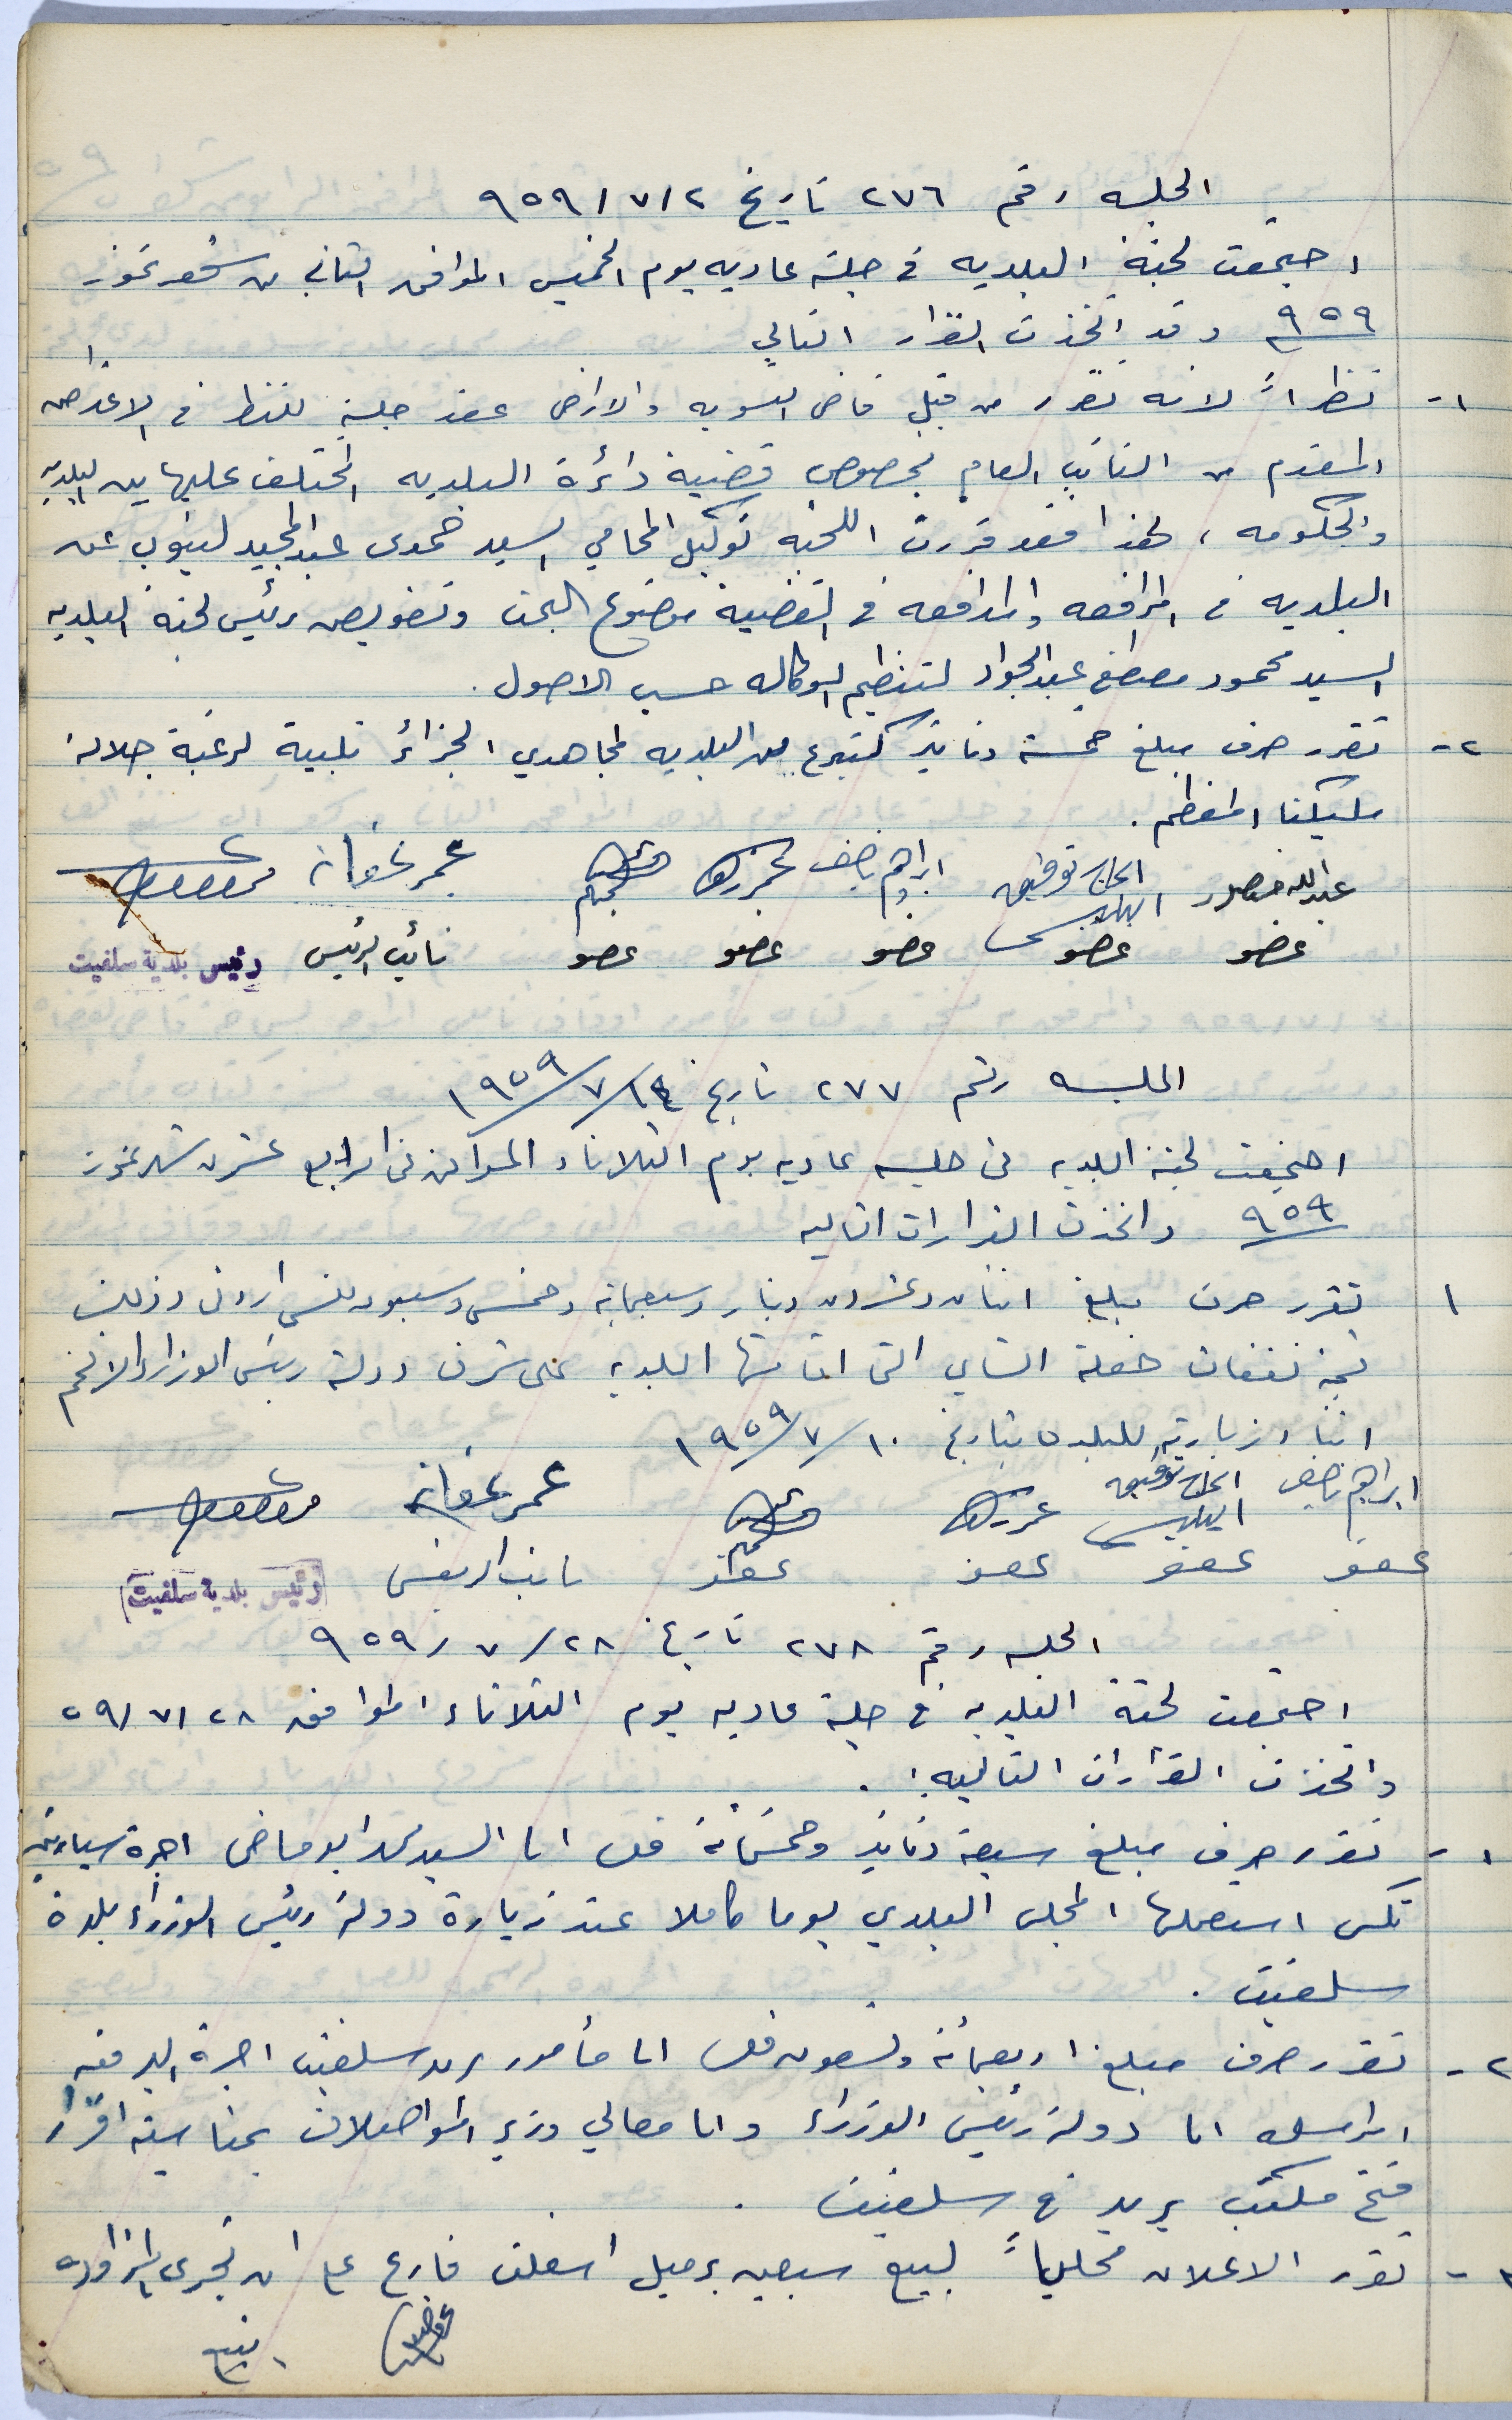 الجلسه رقم ٢٧٦ تاريخ ٩٥٩/٧/٢
اجتمعت لجنة البلديه في جلسة عاديه يوم الخميس الموافق الثاني من شهر تموز
٩٥٩ وقد اتخذت القرار التالي
١- نظراً لانه تقرر من قبل قاضي التسويه والاراضي عقد جلسة للنظر في الاعتراض
المقدم من النائب العام بخصوص قضية دائرة البلديه المختلف عليها بين البلديه
والحكومه ، لهذا فقد قررت اللجنه توكيل المحامي السيد حمدى عبد المجيد لينوب عن
البلديه في المرافعه والمدافعه في القضية موضوع البحث وتفويض رئيس لجنة البلديه
السيد محمود مصطفى عبد الجواد لتنظيم الوكاله حسب الاصول .
٢- تقرر صرف مبلغ خمسة دنانير كتبرع من البلديه لمجاهدي الجزائر تلبية لرغبة جلالة
مليكنا المعظم .
عبد الله منصور الحاج توفيق ابراهيم ناصف عمر عفانه
عضو عضو عضو عضو عضو نائب الرئيس رئيس بلدية سلفيت
الجلسه رقم ٢٧٧ تاريخ ١٩٥٩/٧/١٤
اجتمعت لجنة البلديه في جلسه عاديه يوم الثلاثاء الموافق في الرابع عشر من شهر تموز
٩٥٩ واتخذت القرارات التاليه
١ تقرر صرف مبلغ اثنان وعشرون دينار وسبعماية وخمس وسبعون فلس اردني وذلك
قيمة نفقات حفلة الشاي التي اقامتها البلديه على شرف دولة رئيس الوزراء الافخم
اثناء زيارته للبلده بتاريخ ١٩٥٩/٧/١٠
ابراهيم ناصف الحاج توفيق عمر عفانه
عضو عضو عضو عضو نائب الرئيس رئيس بلدية سلفيت
الجلسه رقم ٢٧٨ تاريخ ٩٥٩/٧/٢٨
اجتمعت لجنة البلديه في جلسة عاديه يوم الثلاثاء الموافق ٥٩/٧/٢٨
واتخذت القرارات التاليه :
١- تقرر صرف مبلغ سبعة دنانير وخمسمائة فلس الى السيد محمد ابو ماضي اجرة سيارته
تكس استعملها المجلس البلدي يوما كاملا عند زيارة دولة رئيس الوزراء بلدة
سلفيت .
٢- تقرر صرف مبلغ اربعمائة وتسعون فلس الى مأمور بريد سلفيت اجرة البرقيه
المرسله الى دولة رئيس الوزراء والى معالي وزير المواصلات بمناسبة اقرار
فتح مكتب بريد في سلفيت .
٣- تقرر الاعلان محلياً لبيع سبعين برميل اسفلت فارغ على ان تجرى المزاوده
يتبع